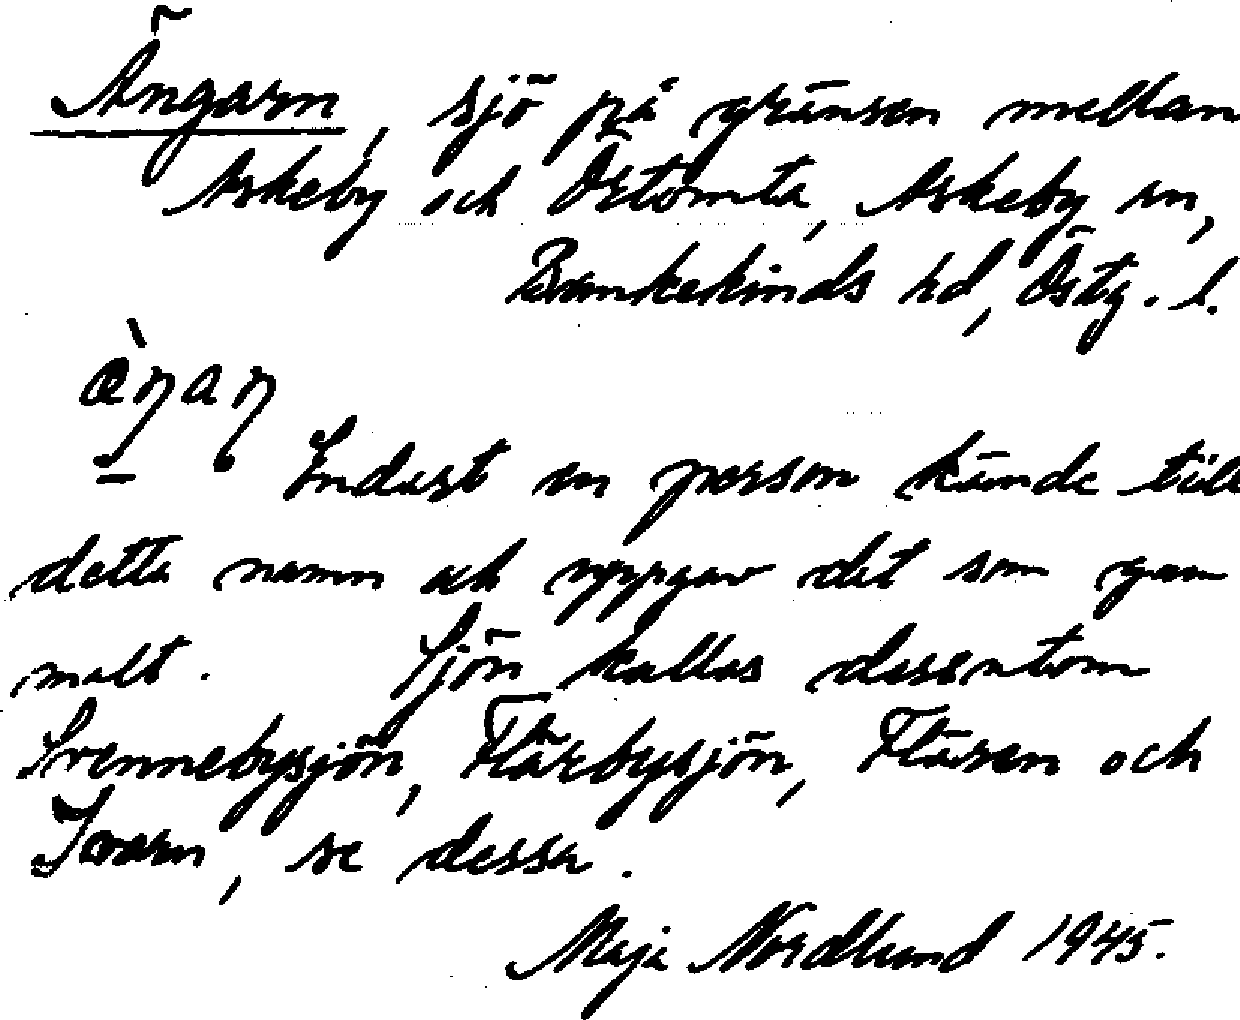 Ängarn, sjö på gränsen mellan
Askeby och Östomta, Askeby sn,
Bankekinds hd, Östg. l.
Endast en person kände till
detta namn och uppgav det som gam
malt. Sjön kallas dessutom
Svennebysjön, Flärbysjön, Flären och
se dessa.
Maja Nordlund 1945.